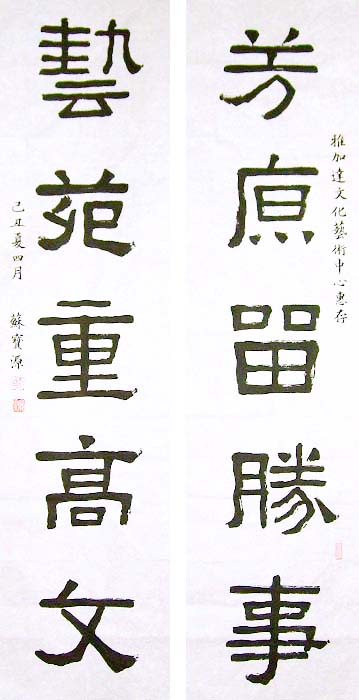 雅加達文化藝術中心惠存
芳原留勝事
藝苑重高文
己丑夏四月 蘇寶源